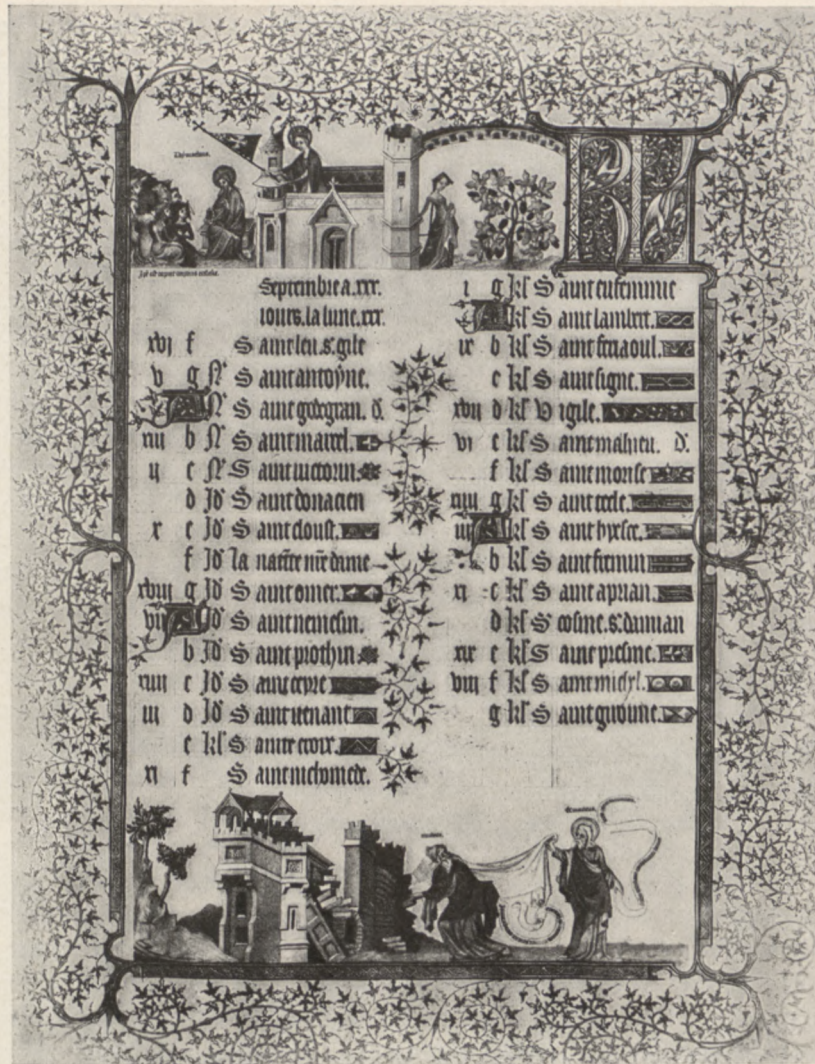 Septembre a .xxx.
iours. la lune .xxx.
xvj f Saint leu. s. gile
v g N' Saint antoyne.
A N' Saint godegran. d.
xiii b N' Saint marcel.
ii c N' Saint victorin.
d Id' Saint donacien
x e Id' Saint cloust.
f Id' la
xviii g Id' Saint omer.
vii A Id' Saint nemesin.
b Id' Saint prothin
c Id' Saint cypre
iii d Id' Saint venant
e kl' Sainte croix.
xi f Saint nichomede.
i g kl' Saint eufemmie
A kl' Saint lambert.
ix b kl' Saint ferraoul.
c kl' Saint signe.
xvii d kl' Vigile.
vi e kl' Saint mahieu. d.
f kl' Saint morise
xiiii g kl' Saint tecle.
iii A kl'
b kl' Saint fremin
xi c kl' Saint aprian.
d kl' S' cosme. s. damian
xix e kl' Saint
viii f kl' Saint michl.
g kl' Saint